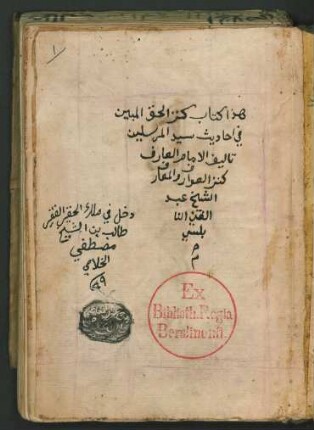 ١
هذا كتاب كنز الحق المبين
في احاديث سيد المرسلين
تاليف الامام العارف
كنز العوارف والمعارف
الشيخ عبد
الغني النا
بلسي
م
دخل في ملك الحقير الفقير
طالب بن الشيخ
مصطفى
Ex
Biblioth. Regia
Berolinensi.